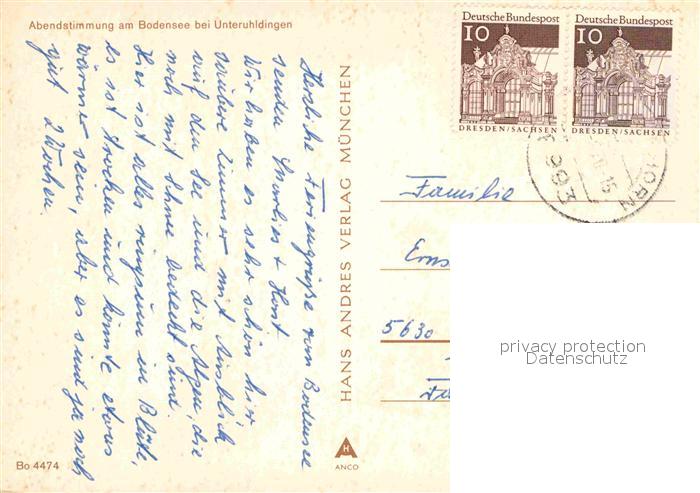 Abendstimmung am Bodensee bei Unteruhldingen
Herzliche Feriengrüße vom Bodensee
senden Marlies + Horst
Wir haben es sehr schön hier
saubere Zimmer mit Ausblick
auf den See und die Alpen, die
noch mit Schnee bedeckt sind.
Hier ist alles ringsum in Blüte,
es ist trocken und könnte etwas
wärmer sein, aber es sind ja noch
gut 2 Wochen.
HANS ANDRES VERLAG MÜNCHEN
Bo 4474
H
ANCO
Deutsche Bundespost
10
DRESDEN/SACHSEN
Deutsche Bundespost
10
DRESDEN/SACHSEN
Familie
5630
privacy protection
Datenschutz